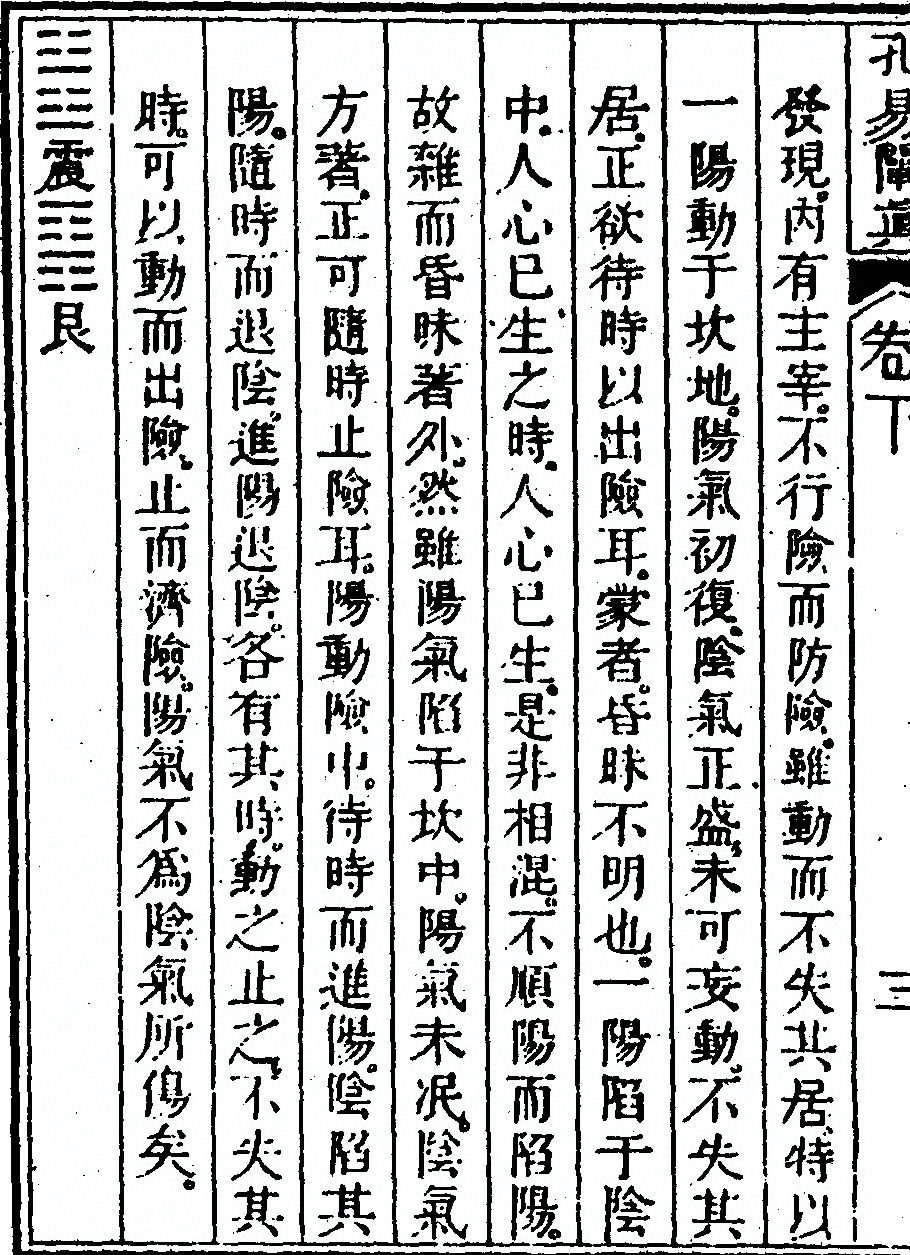 孔易闡真 卷下 三
發現。內有主宰。不行險而防險。雖動而不失其居。特以
一陽動于坎地。陽氣初復。陰氣正盛。未可妄動。不失其
居。正欲待時以出險耳。蒙者。昏昧不明也。一陽陷于陰
中。人心已生之時。人心已生。是非相混。不順陽而陷陽。
故雜而昏昧著外。然雖陽氣陷于坎中。陽氣未泯。陰氣
方著。正可隨時止險耳。陽動險中。待時而進陽。陰陷其
陽。隨時而退陰。進陽退陰。各有其時。動之止之。不失其
時。可以動而出險。止而濟險。陽氣不為陰氣所傷矣。
䷲震䷳艮